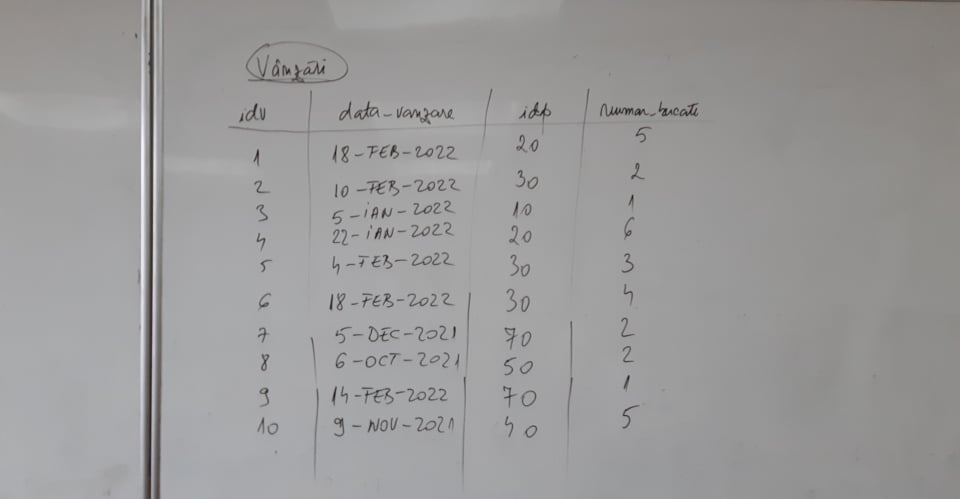 Vânzări
idv data_vanzare idp numar_bucati
1 18-FEB-2022 20 5
2 10-FEB-2022 30 2
3 5-iAN-2022 10 1
4 22-iAN-2022 20 6
5 4-FEB-2022 30 3
6 18-FEB-2022 30 4
7 5-DEC-2021 70 2
8 6-OCT-2021 50 2
9 14-FEB-2022 70 1
10 9-NOV-2021 40 5